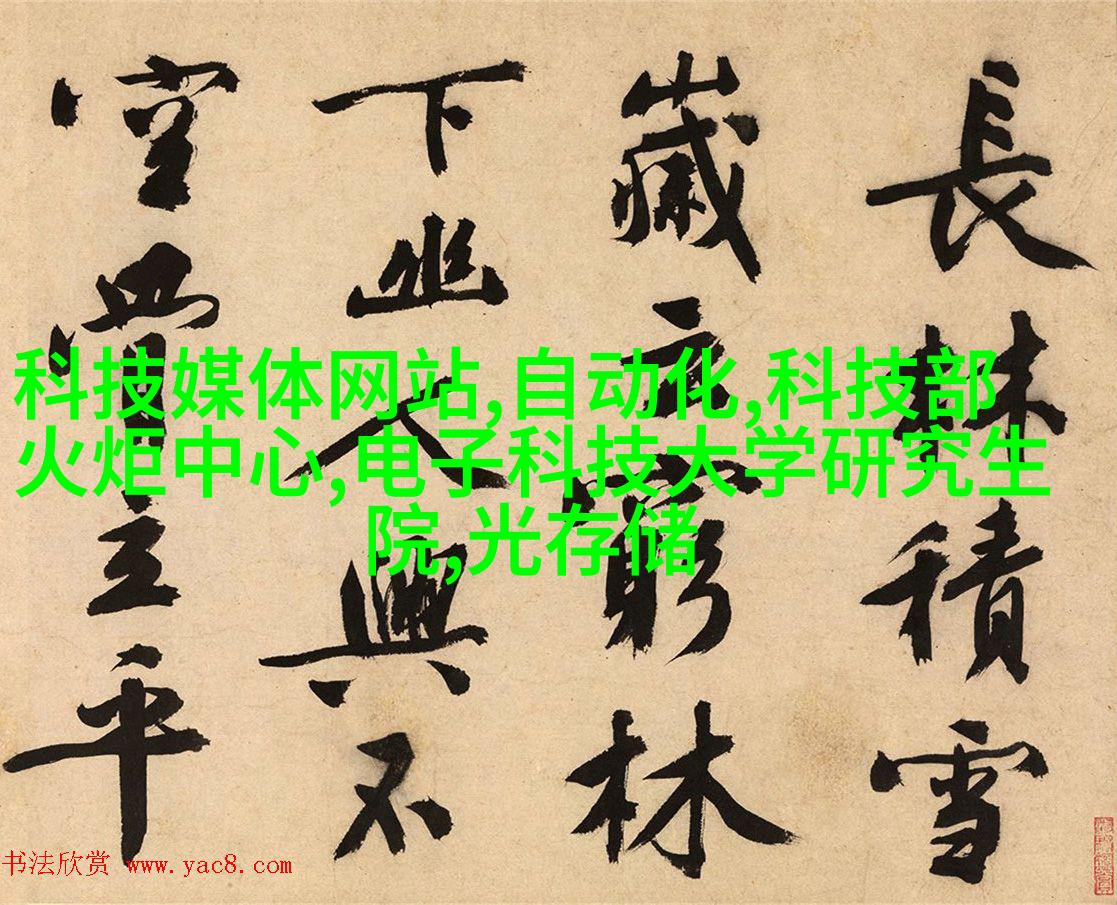 長林積雪
歲窮林
下幽人興不
空立平
科技媒体网站,自动化,科技部
火炬中心,电子科技大学研究生
院,光存储
书法欣赏 www.yac8.com